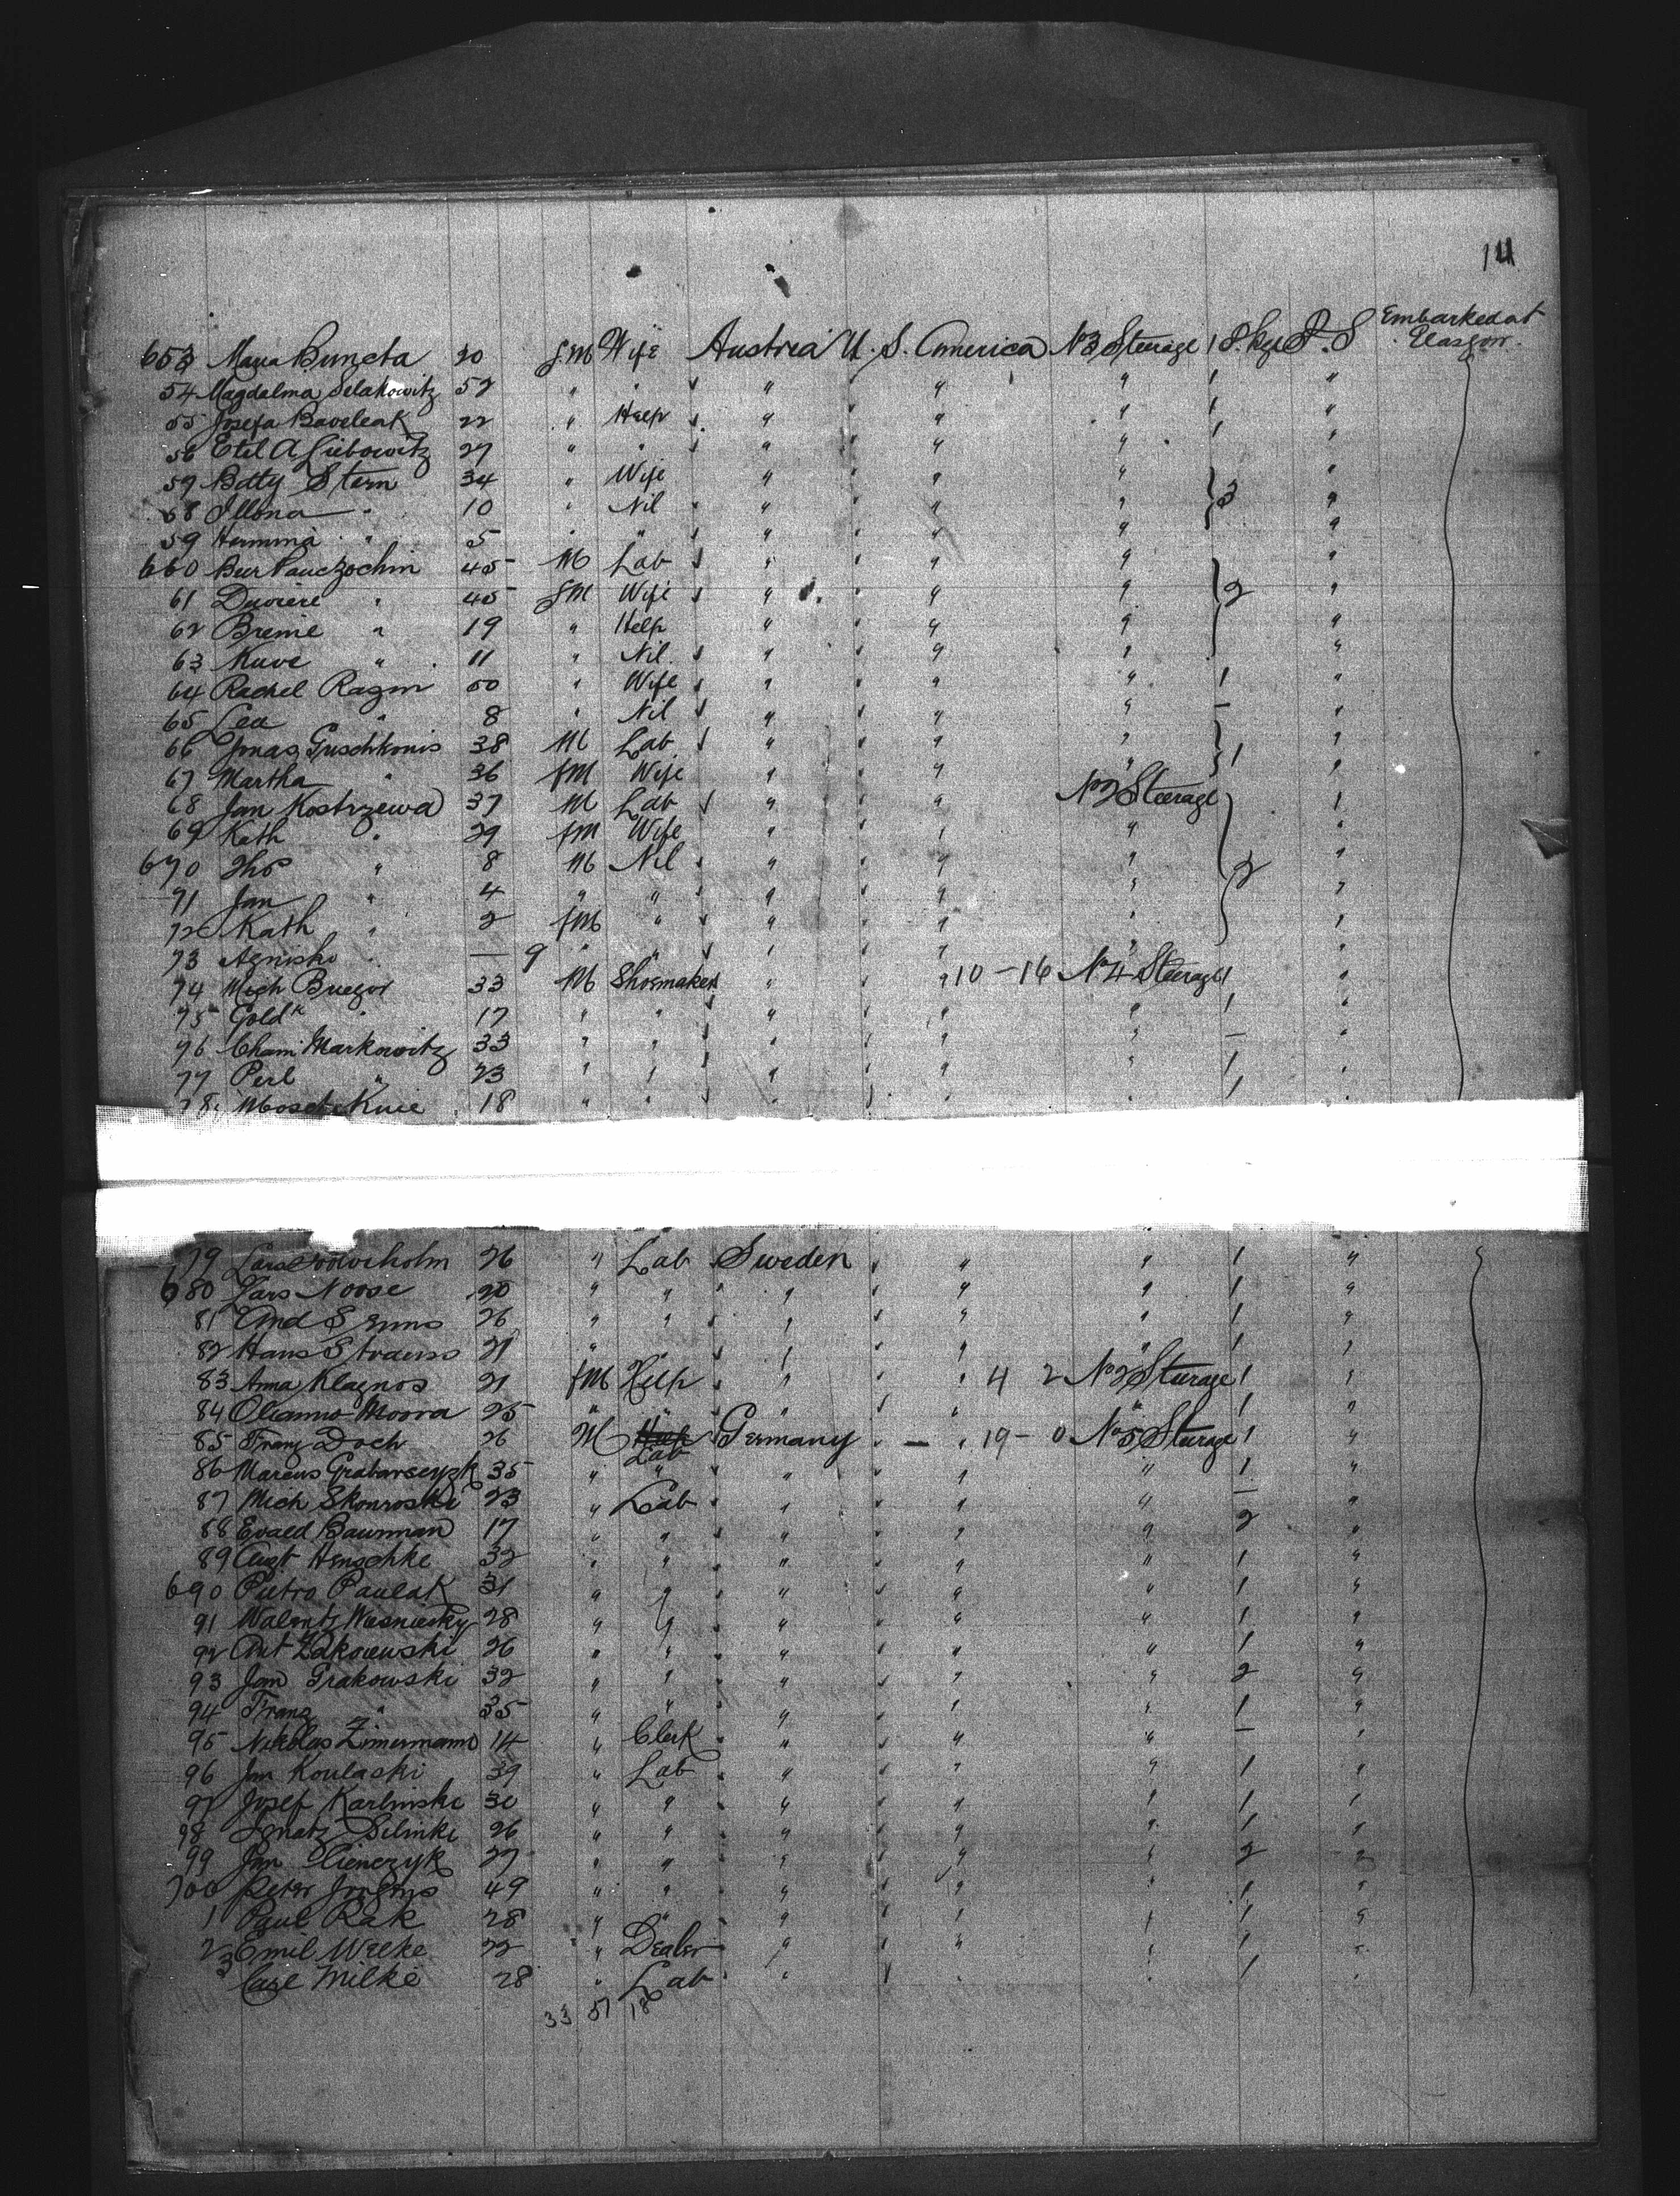 14
Embarked at
653 Maria Buncta 20 fM Wife Austria U. S. America No 3 Steerage 1 P. Kge P. S Glasgow.
54 Magdalma Selakowitz 52 " " " " " 1 "
55 Josefa Baveleak 22 " Help " " " 1 "
56 Etel A Liebowitz 27 " " " " " 1 "
59 Betty Stern 34 " Wife " " " "
68 Illona " 10 " Nil " " " 3 "
59 Hermina " 5 " " " " " "
660 Ber Pauczochin 45 M Lab " " "
61 Dwiere " 45 fM Wife " " " 2 "
62 Breine " 19 " Help " " " "
63 Kuve " 11 " Nil. " " " "
64 Rachel Ragin 50 " Wife " " " 1 "
65 Lea " 8 " Nil " " " — "
66 Jonas Grischkonis 38 M Lab " " " "
67 Martha " 36 fM Wife " " " 1 "
68 Jan Kostrzewa 37 M Lab " " No 2 Steerage "
69 Kath " 29 fM Wife " " " "
670 Ths " 8 M Nil " " " 2 "
71 Jan " 4 " " " " " "
72 Kath " 2 fM " " " " "
73 Agnisko " — 9 " " " " " "
74 Mich Bregor 33 M Shoemaker " " 10 - 16 No 4 Steerage 1 "
75 Gold k " 17 " " " " " 1 "
76 Chami Markowitz 33 " " " " " — "
77 Perl " 23 " " " " " 1 "
78 Mosch Knie 18 " " " " " 1 "
79 Lars 26 " Lab Sweden " " 1 "
680 Lars Noose 20 " " " " " 1 "
81 And S 26 " " " " " 1 "
82 Hans Strauss 21 " " " " " 1 "
83 Anna Klagnos 21 fM Help " " 4 2 No 2 Steerage 1 "
84 Olianno Moora 25 " " " " " 1 "
85 Franz Doch 26 M Help Germany — " 19 - 0 No 5 Steerage 1 "
Lab
86 Marcus Grabarseyzk 35 " " " " " 1 "
87 Mich Skonroski 23 " Lab " " " — "
88 Evald Bauman 17 " " " " " 2 "
89 Aug Henschke 32 " " " " " 1 "
690 Pietro Paulak 31 " " " " " 1 "
91 Walentz Wesniesky 28 " " " " " 1 "
92 Ant Zakowuski 26 " " " " " 1 "
93 Jan Grakowski 32 " " " " " 2 "
94 Franz " 35 " " " " " 1 "
95 Nikolas Zimermann 14 " Clerk " " " — "
96 Jan Koulaski 39 " Lab " " " 1 "
97 Josef Karlinski 30 " " " " " 1 "
98 Ignatz Silinki 26 " " " " " 1 "
99 Jan Olienczyk 27 " " " " " 2 "
700 Peter Jorgens 49 " " " " " 1 "
1 Paul Rak 28 " " " " " 1 "
2 Emil Welke 22 " Dealer " " " 1 "
3 Carl Milke 28 " Lab " " " 1 "
33 51 18